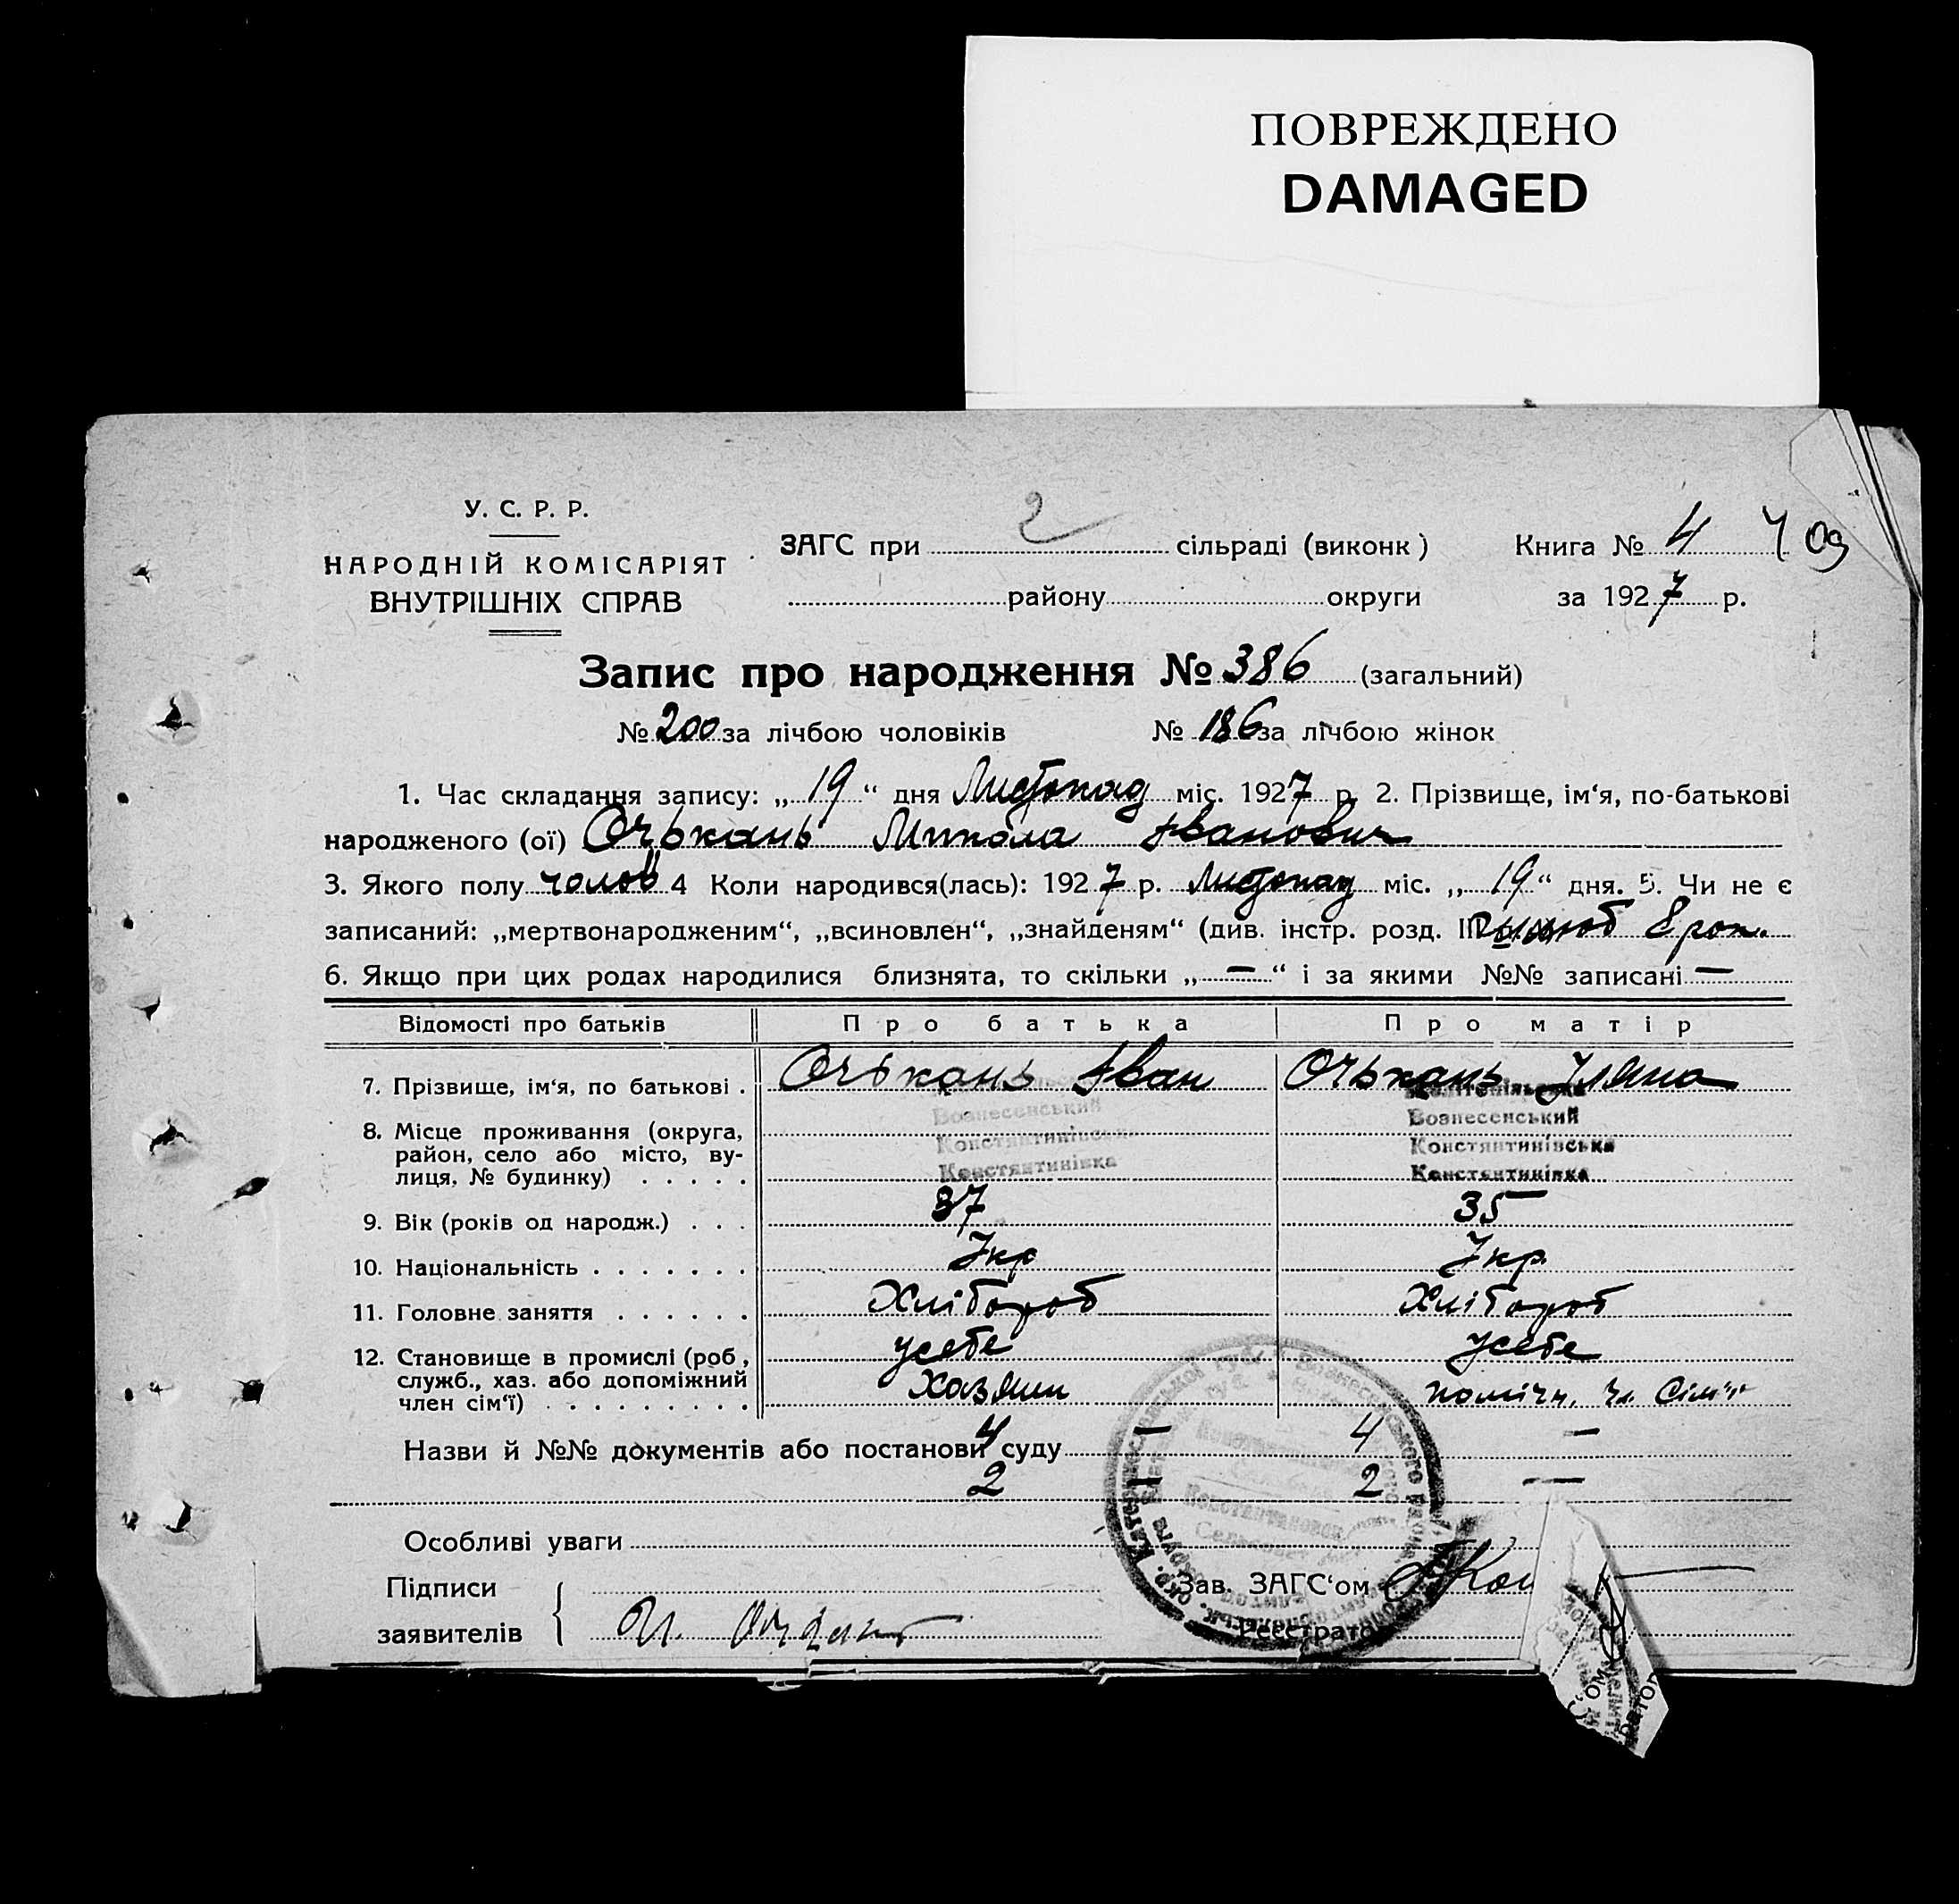 ПОВРЕЖДЕНО
DAMAGED
У. С. Р. Р.
НАРОДНІЙ КОМІСАРІЯТ
ВНУТРІШНІХ СПРАВ
ЗАГС при 2 сільраді (виконк) Книга № 4 409
району округи за 1927 р.
Запис про народження № 386 (загальний)
№ 200 за лічбою чоловіків № 186 за лічбою жінок
1. Час складання запису: „19“ дня Листопад міс. 1927 р. 2. Прізвище, ім‘я, по-батькові
народженого (ої) Очькань Микола Іванович
3. Якого полу чолов 4 Коли народився(лась): 1927 р. Листопад міс. „19“ дня. 5. Чи не є
записаний: „мертвонародженим“, „всиновлен“, „знайденям“ (див. інстр. розд. III
6. Якщо при цих родах народилися близнята, то скільки „—“ і за якими №№ записані —
Відомості про батьків Про батька Про матір
7. Прізвище, ім‘я, по батькові . Очькань Іван Очькань Уляна
8. Місце проживання (округа, район, село або місто, вулиця, № будинку) . . . . .
Вознесенський Вознесенський
Константинівська Константинівська
Константинівка Константинівка
9. Вік (років од народж.) . . . 37 35
10. Національність . . . . . . . Укр Укр.
11. Головне заняття . . . . . . Хлібороб Хлібороб
12. Становище в промислі (роб, служб., хаз. або допоміжний член сім‘ї) . . . . . . . . .
усебе усебе
Хазяин помічн. чл. Сім'ї
Назви й №№ документів або постанови суду 4 — 4 —
2 — 2 —
Особливі уваги
Підписи
заявителів
Зав. ЗАГС‘ом
Реєстратор